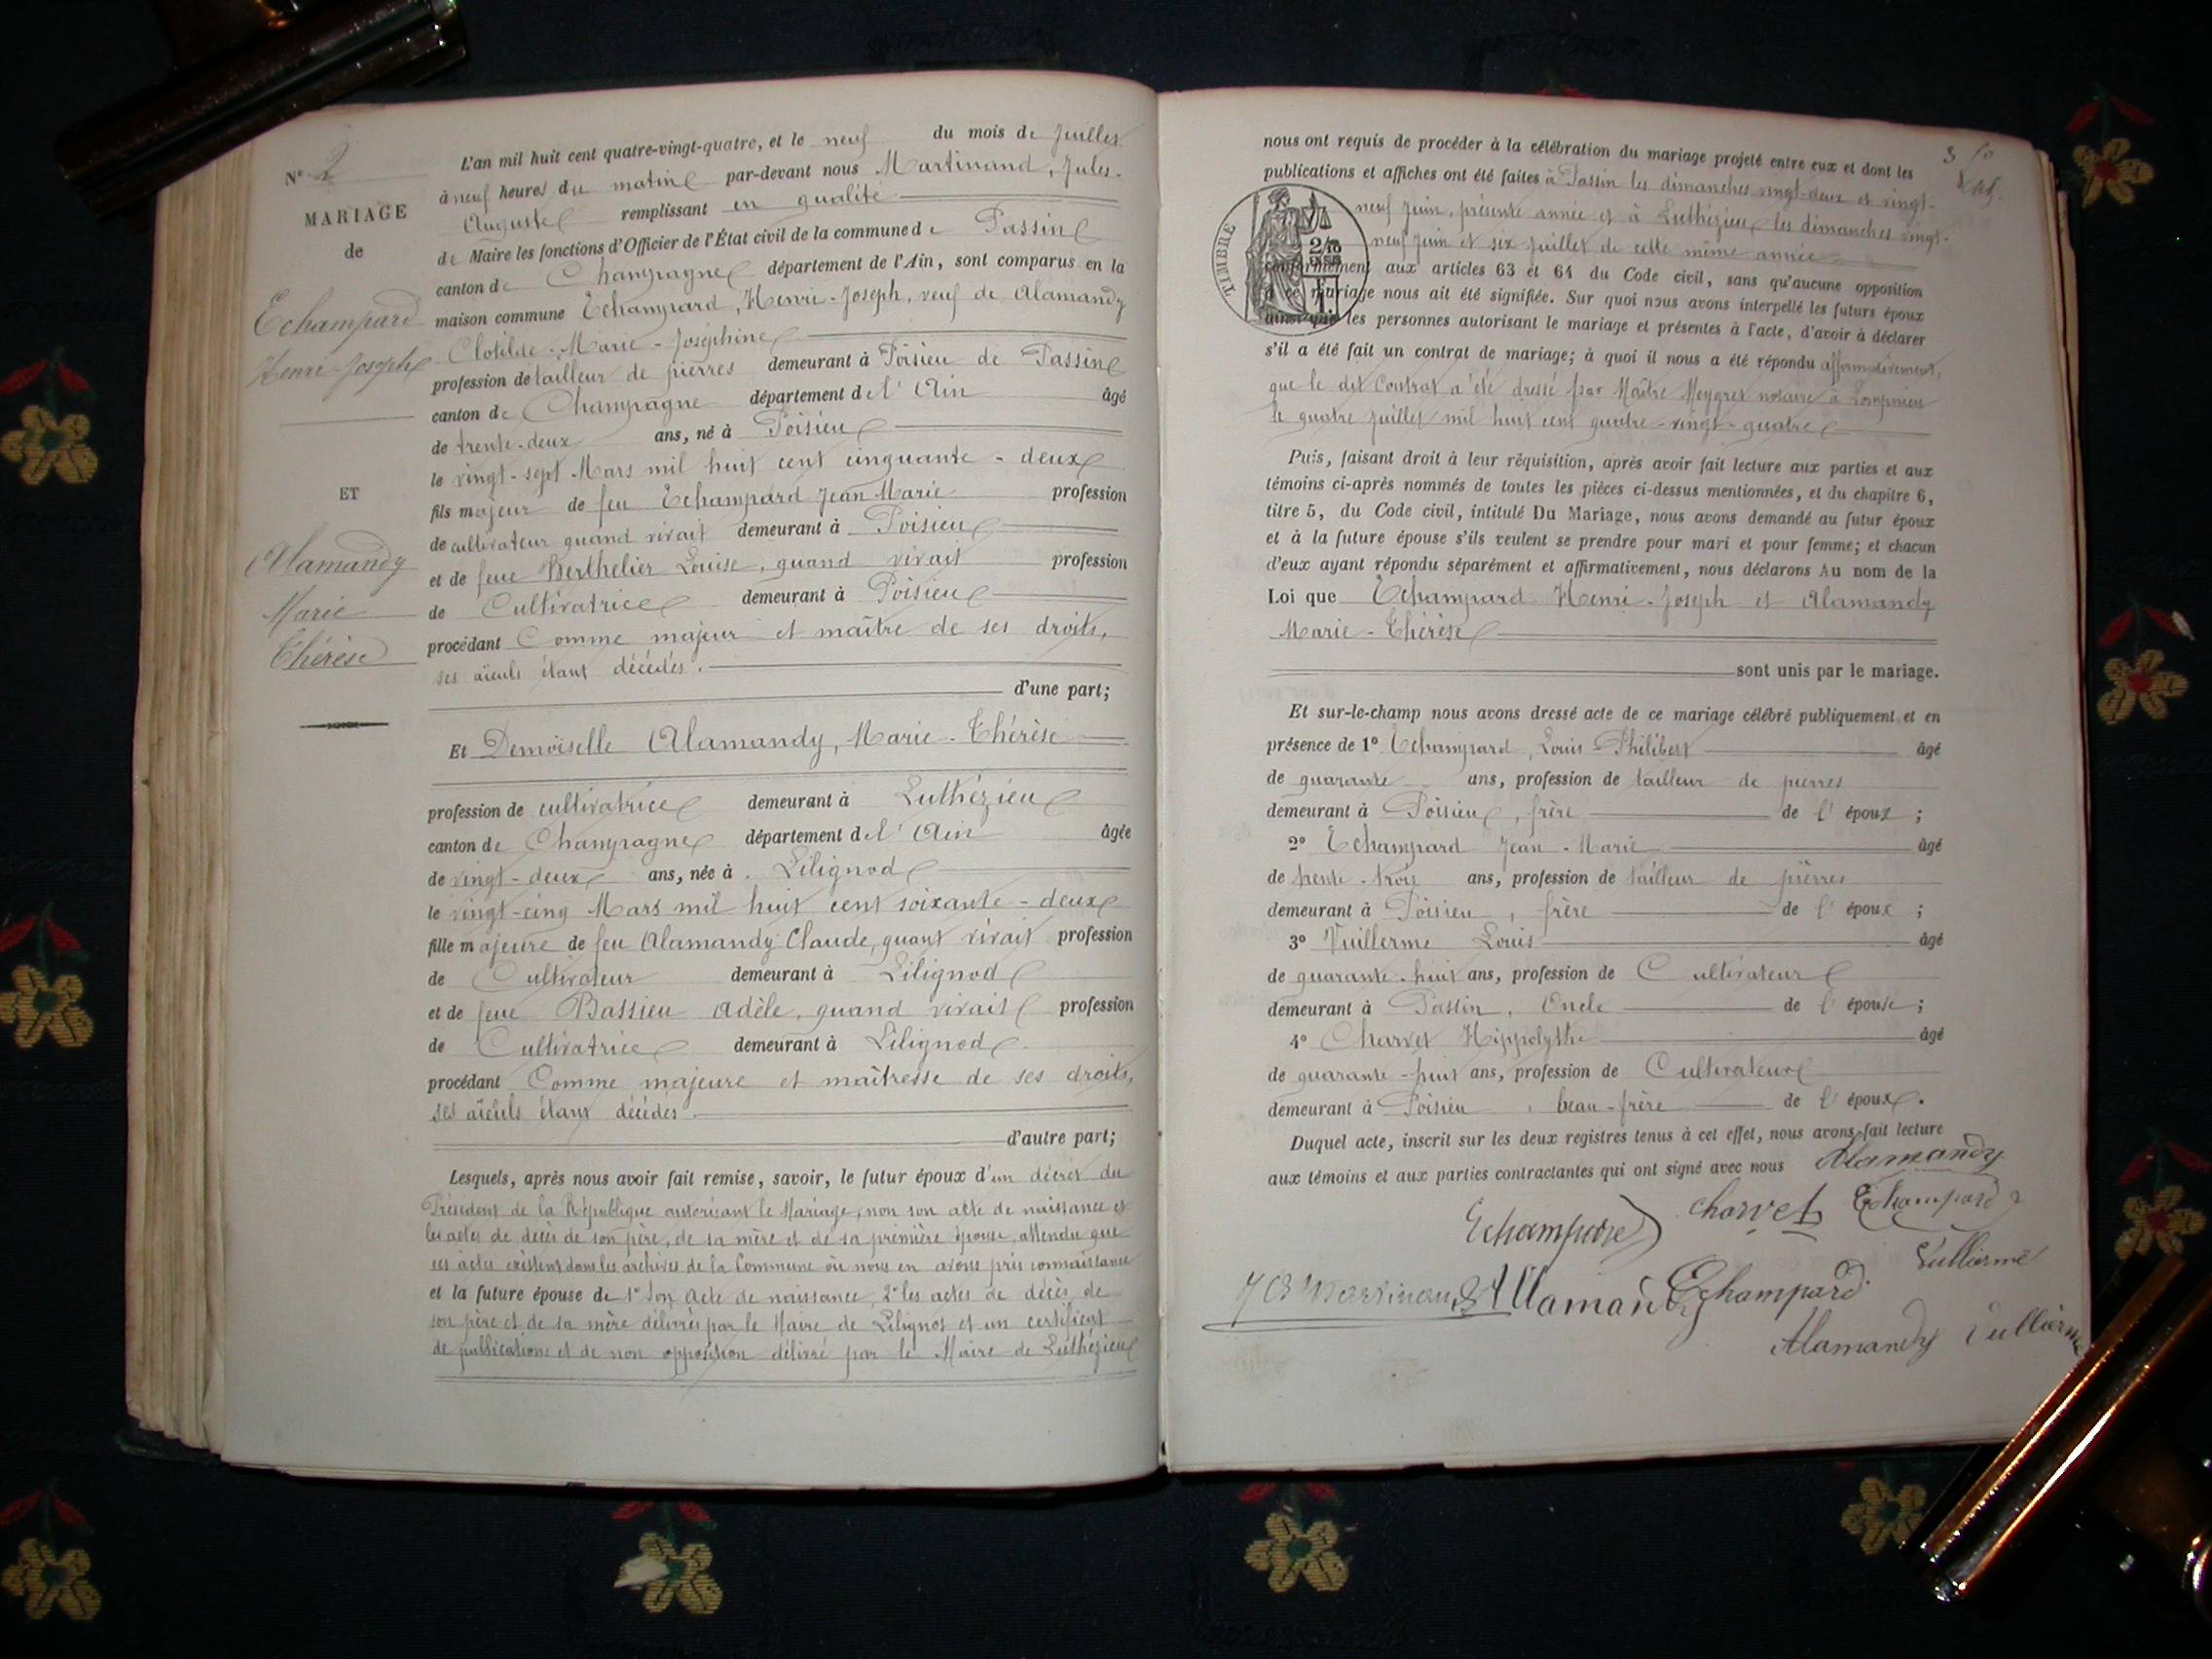 N° 2
MARIAGE
de
Echampard
Henri-Joseph
ET
Alamandy
Marie
Thérèse
L'an mil huit cent quatre-vingt-quatre, et le neuf du mois de Juillet
à neuf heures du matin par-devant nous Martinand, Jules-
Auguste remplissant en qualité
de Maire les fonctions d'Officier de l'État civil de la commune de Passin
canton de Champagne département de l'Ain, sont comparus en la
maison commune Echampard, Henri-Joseph, veuf de Alamandy
Clotilde-Marie-Joséphine
profession de tailleur de pierres demeurant à Poisieu de Passin
canton de Champagne département de l'Ain âgé
de trente-deux ans, né à Poisieu
le vingt-sept Mars mil huit cent cinquante-deux
fils majeur de feu Echampard Jean Marie profession
de cultivateur quand vivait demeurant à Poisieu
et de feue Berthelier Louise, quand vivait profession
de Cultivatrice demeurant à Poisieu
procédant Comme majeur et maître de ses droits,
ses aïeuls étant décédés.
d'une part;
Et Demoiselle Alamandy, Marie-Thérèse
profession de cultivatrice demeurant à Luthézieu
canton de Champagne département de l'Ain âgée
de vingt-deux ans, née à Lilignod
le vingt-cinq Mars mil huit cent soixante-deux
fille majeure de feu Alamandy Claude, quant vivait profession
de Cultivateur demeurant à Lilignod
et de feue Bassieu Adèle, quand vivait profession
de Cultivatrice demeurant à Lilignod
procédant Comme majeure et maîtresse de ses droits,
ses aïeuls étant décédés.
d'autre part;
Lesquels, après nous avoir fait remise, savoir, le futur époux d'un décret du
Président de la République autorisant le Mariage, non son acte de naissance et
les actes de décès de son père, de sa mère et de sa première épouse, attendu que
ces actes existent dans les archives de la Commune où nous en avons pris connaissance
et la future épouse de 1° Son Acte de naissance, 2° les actes de décès de
son père et de sa mère délivrés par le Maire de Lilignod et un certificat
de publications et de non opposition délivré par le Maire de Luthézieu
nous ont requis de procéder à la célébration du mariage projeté entre eux et dont les
publications et affiches ont été faites à Passin les dimanches vingt-deux et vingt-
neuf Juin, présente année et à Luthézieu les dimanches vingt-
neuf Juin et six Juillet de cette même année
TIMBRE
conformément aux articles 63 et 64 du Code civil, sans qu'aucune opposition
à ce mariage nous ait été signifiée. Sur quoi nous avons interpellé les futurs époux
ainsi que les personnes autorisant le mariage et présentes à l'acte, d'avoir à déclarer
s'il a été fait un contrat de mariage; à quoi il nous a été répondu affirmativement,
que le dit Contrat a été dressé par Maître Meygret notaire à
le quatre Juillet mil huit cent quatre-vingt-quatre
Puis, faisant droit à leur réquisition, après avoir fait lecture aux parties et aux
témoins ci-après nommés de toutes les pièces ci-dessus mentionnées, et du chapitre 6,
titre 5, du Code civil, intitulé Du Mariage, nous avons demandé au futur époux
et à la future épouse s'ils veulent se prendre pour mari et pour femme; et chacun
d'eux ayant répondu séparément et affirmativement, nous déclarons Au nom de la
Loi que Echampard Henri-Joseph et Alamandy
Marie-Thérèse
sont unis par le mariage.
Et sur-le-champ nous avons dressé acte de ce mariage célébré publiquement et en
présence de 1° Echampard, Louis-Philibert âgé
de quarante ans, profession de tailleur de pierres
demeurant à Poisieu, frère de l'époux;
2° Echampard Jean-Marie âgé
de trente-trois ans, profession de tailleur de pierres
demeurant à Poisieu, frère de l'époux;
3° Vuillerme Louis âgé
de quarante-huit ans, profession de Cultivateur
demeurant à Passin, Oncle de l'épouse;
4° Charvet Hippolythe âgé
de quarante-huit ans, profession de Cultivateur
demeurant à Poisieu, beau-frère de l'époux.
Duquel acte, inscrit sur les deux registres tenus à cet effet, nous avons fait lecture
aux témoins et aux parties contractantes qui ont signé avec nous Alamandy
Echampard charvet Echampard
Vulliermé
Martinand Allamandy Echampard
Alamandy Vullierme